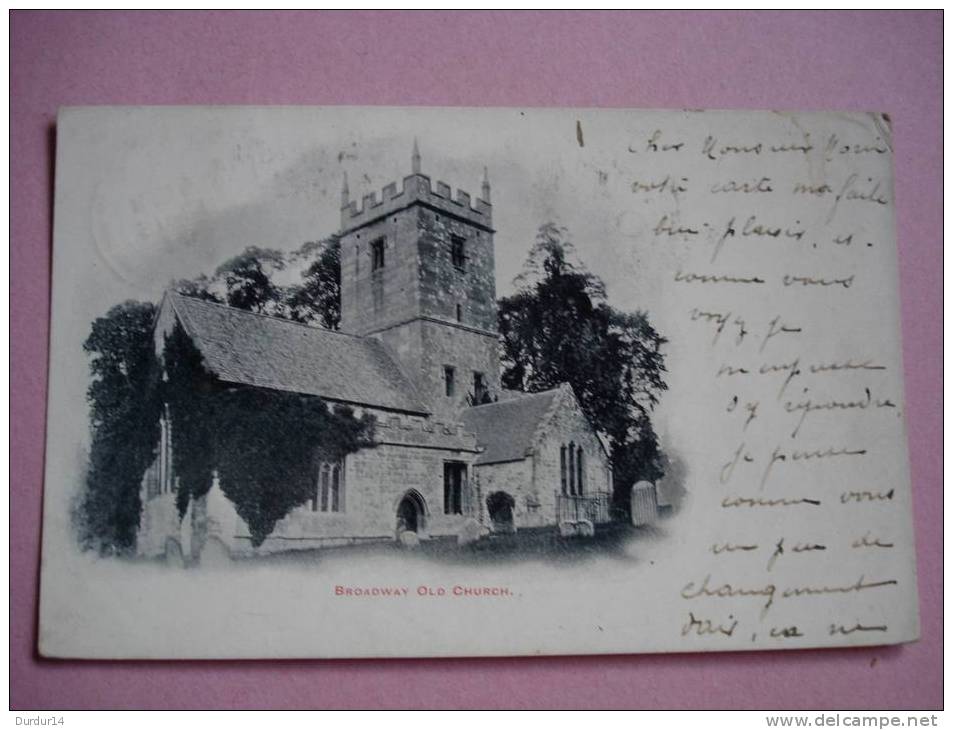 cher Monsieur
votre carte m'a faite
bien plaisir, et
comme vous
voyez je
m'empresse
d'y répondre,
Je pense
comme vous
un peu de
changement
mais, ça ne
BROADWAY OLD CHURCH.
Durdur14
www.delcampe.net